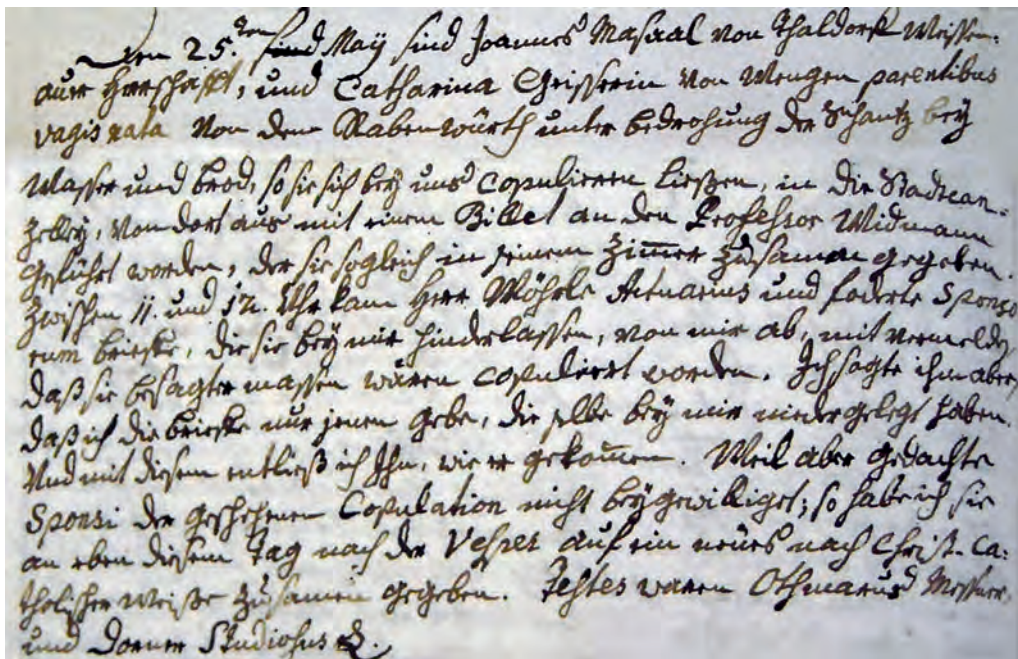 Den 25.ten sind May sind Joannes Masaal von Thaldorf Weissen-
auer Herrschafft, und Catharina Geisserin von Wengen parentibus
vagis nata von dem Rabenwürth unter bedrohung der Schantz bey
Wasser und brod, so sie sich bey uns copulieren liessen, in die Stadtcan-
zelley, von dort aus mit einem Billet an den Professor Widmann
geführt worden, der sie sogleich in seinem Zimmer zusamen gegeben.
Zwischen 11. und 12. Uhr kam Herr Möhrle Actuarius und foderte Sponso
rum brieffe, die sie bey mir hinderlassen, von mir ab, mit vermelden,
daß sie besagter massen wären copuliert worden. Ich sagte ihm aber,
daß ich die brieffe nur jenen gebe, die selbe bey mir nidergelegt haben.
Und mit diesem entließ ich Ihn, wie er gekommen. Weil aber gedachte
Sponsi der geschehenen Copulation nicht beygewilliget; so habe ich sie
an eben diesem Tag nach der Vesper auf ein neües nach Christ-Ca-
tholischer Weiße zusamen gegeben. Testes waren Othmarus Messner,
und Dorner Studiosus